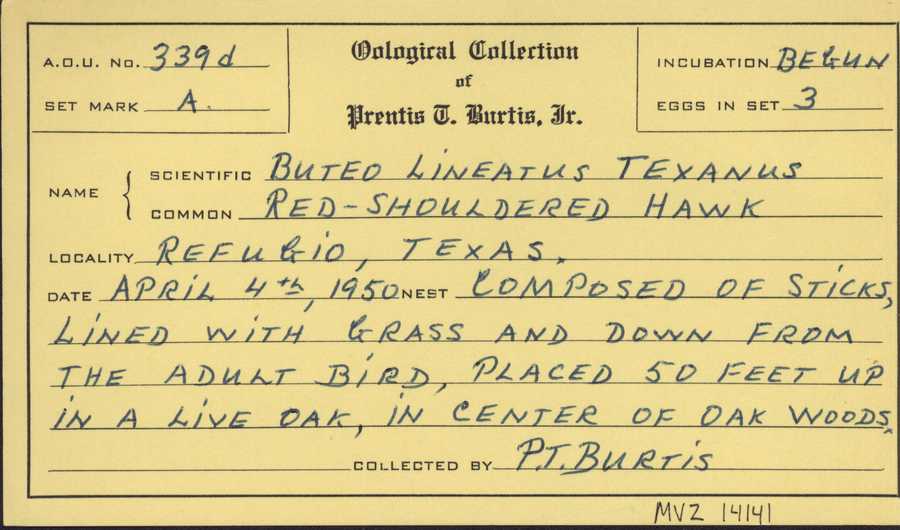 A.O.U. No. 339d
SET MARK A.
Oological Collection
of
Prentis T. Burtis, Jr.
INCUBATION BEGUN
EGGS IN SET 3
NAME
SCIENTIFIC BUTEO LINEATUS TEXANUS
COMMON RED-SHOULDERED HAWK
LOCALITY REFUGIO, TEXAS.
DATE APRIL 4th, 1950 NEST COMPOSED OF STICKS,
LINED WITH GRASS AND DOWN FROM
THE ADULT BIRD, PLACED 50 FEET UP
IN A LIVE OAK, IN CENTER OF OAK WOODS.
COLLECTED BY P.T. BURTIS
MVZ 14141